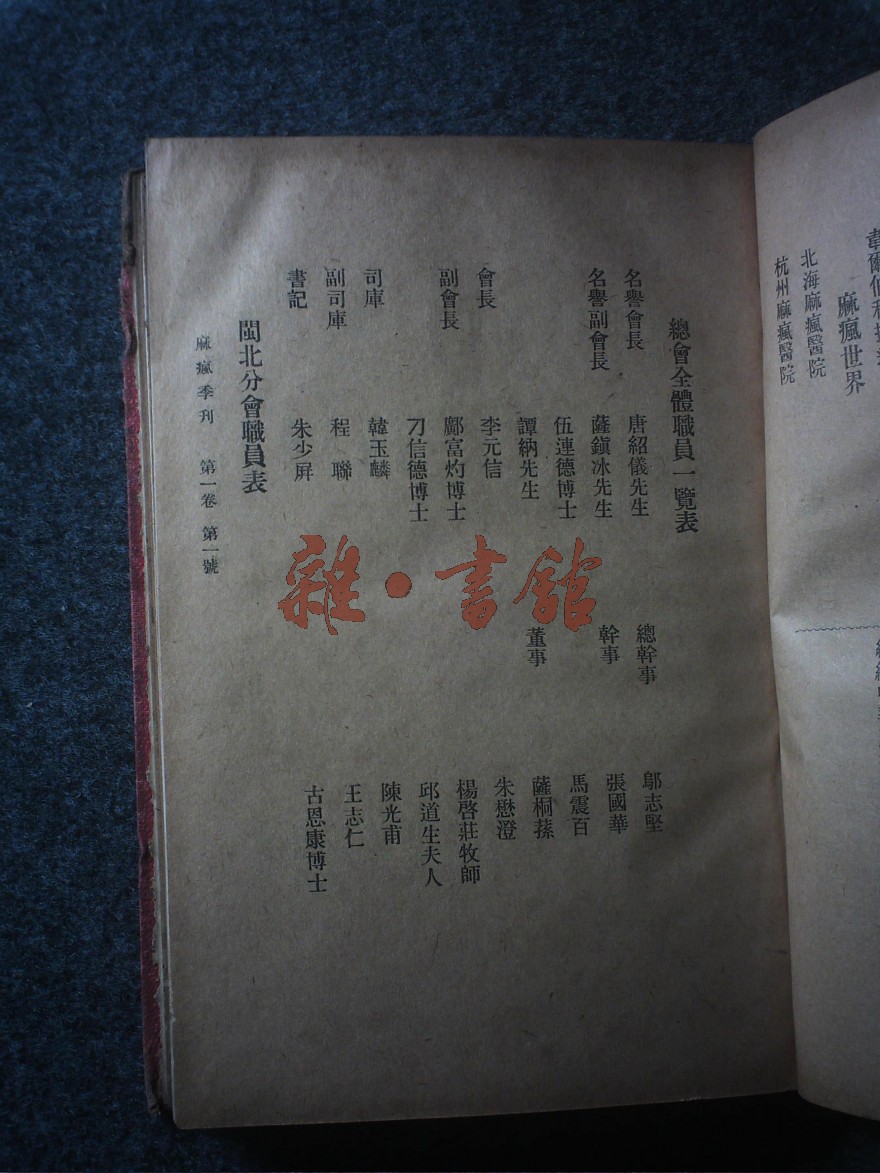 北海麻瘋醫院
杭州麻瘋醫院
麻瘋世界
總會全體職員一覽表
名譽會長 唐紹儀先生
名譽副會長 薩鎭冰先生
伍連德博士
譚納先生
會長 李元信
副會長 鄺富灼博士
刁信德博士
司庫 韓玉麟
副司庫 程聯
書記 朱少屏
總幹事 鄔志堅
幹事 張國華
馬震百
董事 薩桐蓀
朱懋澄
楊啓莊牧師
邱道生夫人
陳光甫
王志仁
古恩康博士
閩北分會職員表
麻瘋季刊 第一卷 第一號
雜·書館